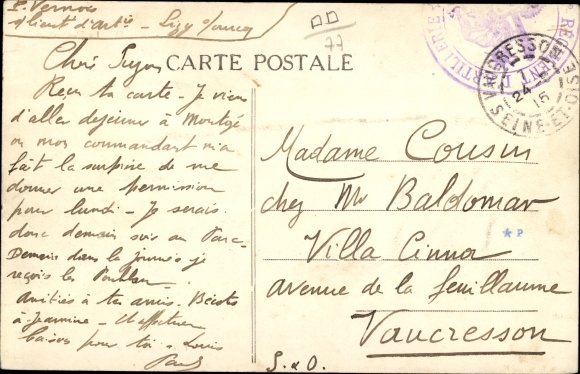 P. Vernon
d'art - Lizy s/ourcq
BB
77
CARTE POSTALE
REGIMENT D'ARTILLERIE
VAUCRESSON
24
15
SEINE-ET-OISE
Reçu ta carte - Je viens
d'aller déjeuner à
ou mon commandant m'a
fait la surprise de me
donner une permission
pour lundi - Je serais
donc demain soir au
Demain dans la journée je
reçois les
Amitiés à tes amis. Bécots
à Jeannine - Et affectueux
baisers pour toi - Louis
Paul
Madame Cousin
chez Mr Baldomar
Villa Cinna
*P
avenue de la feuillaume
Vaucresson
S. & O.